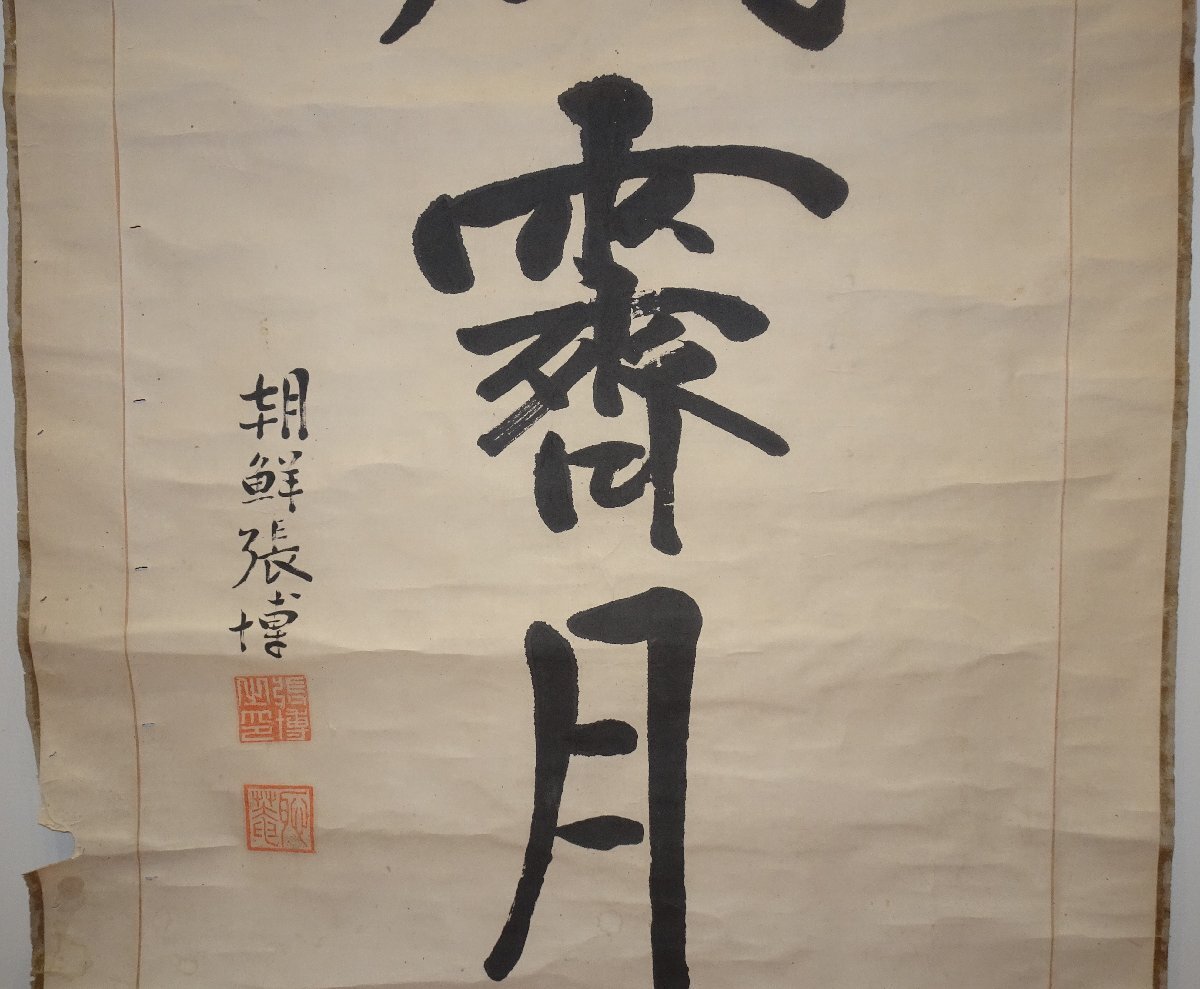 霽月
朝鮮張博
張博之印